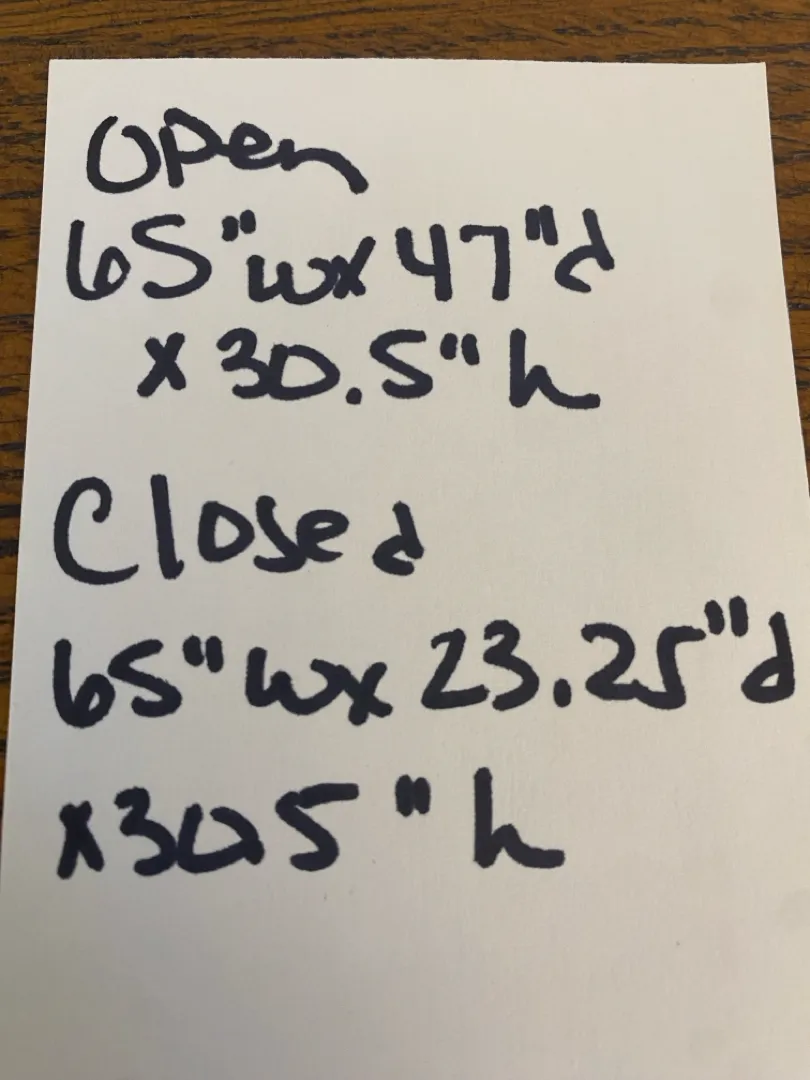 Open
65"wx 47"d
x 30.5" h
Closed
65" wx 23.25"d
x30.5" h